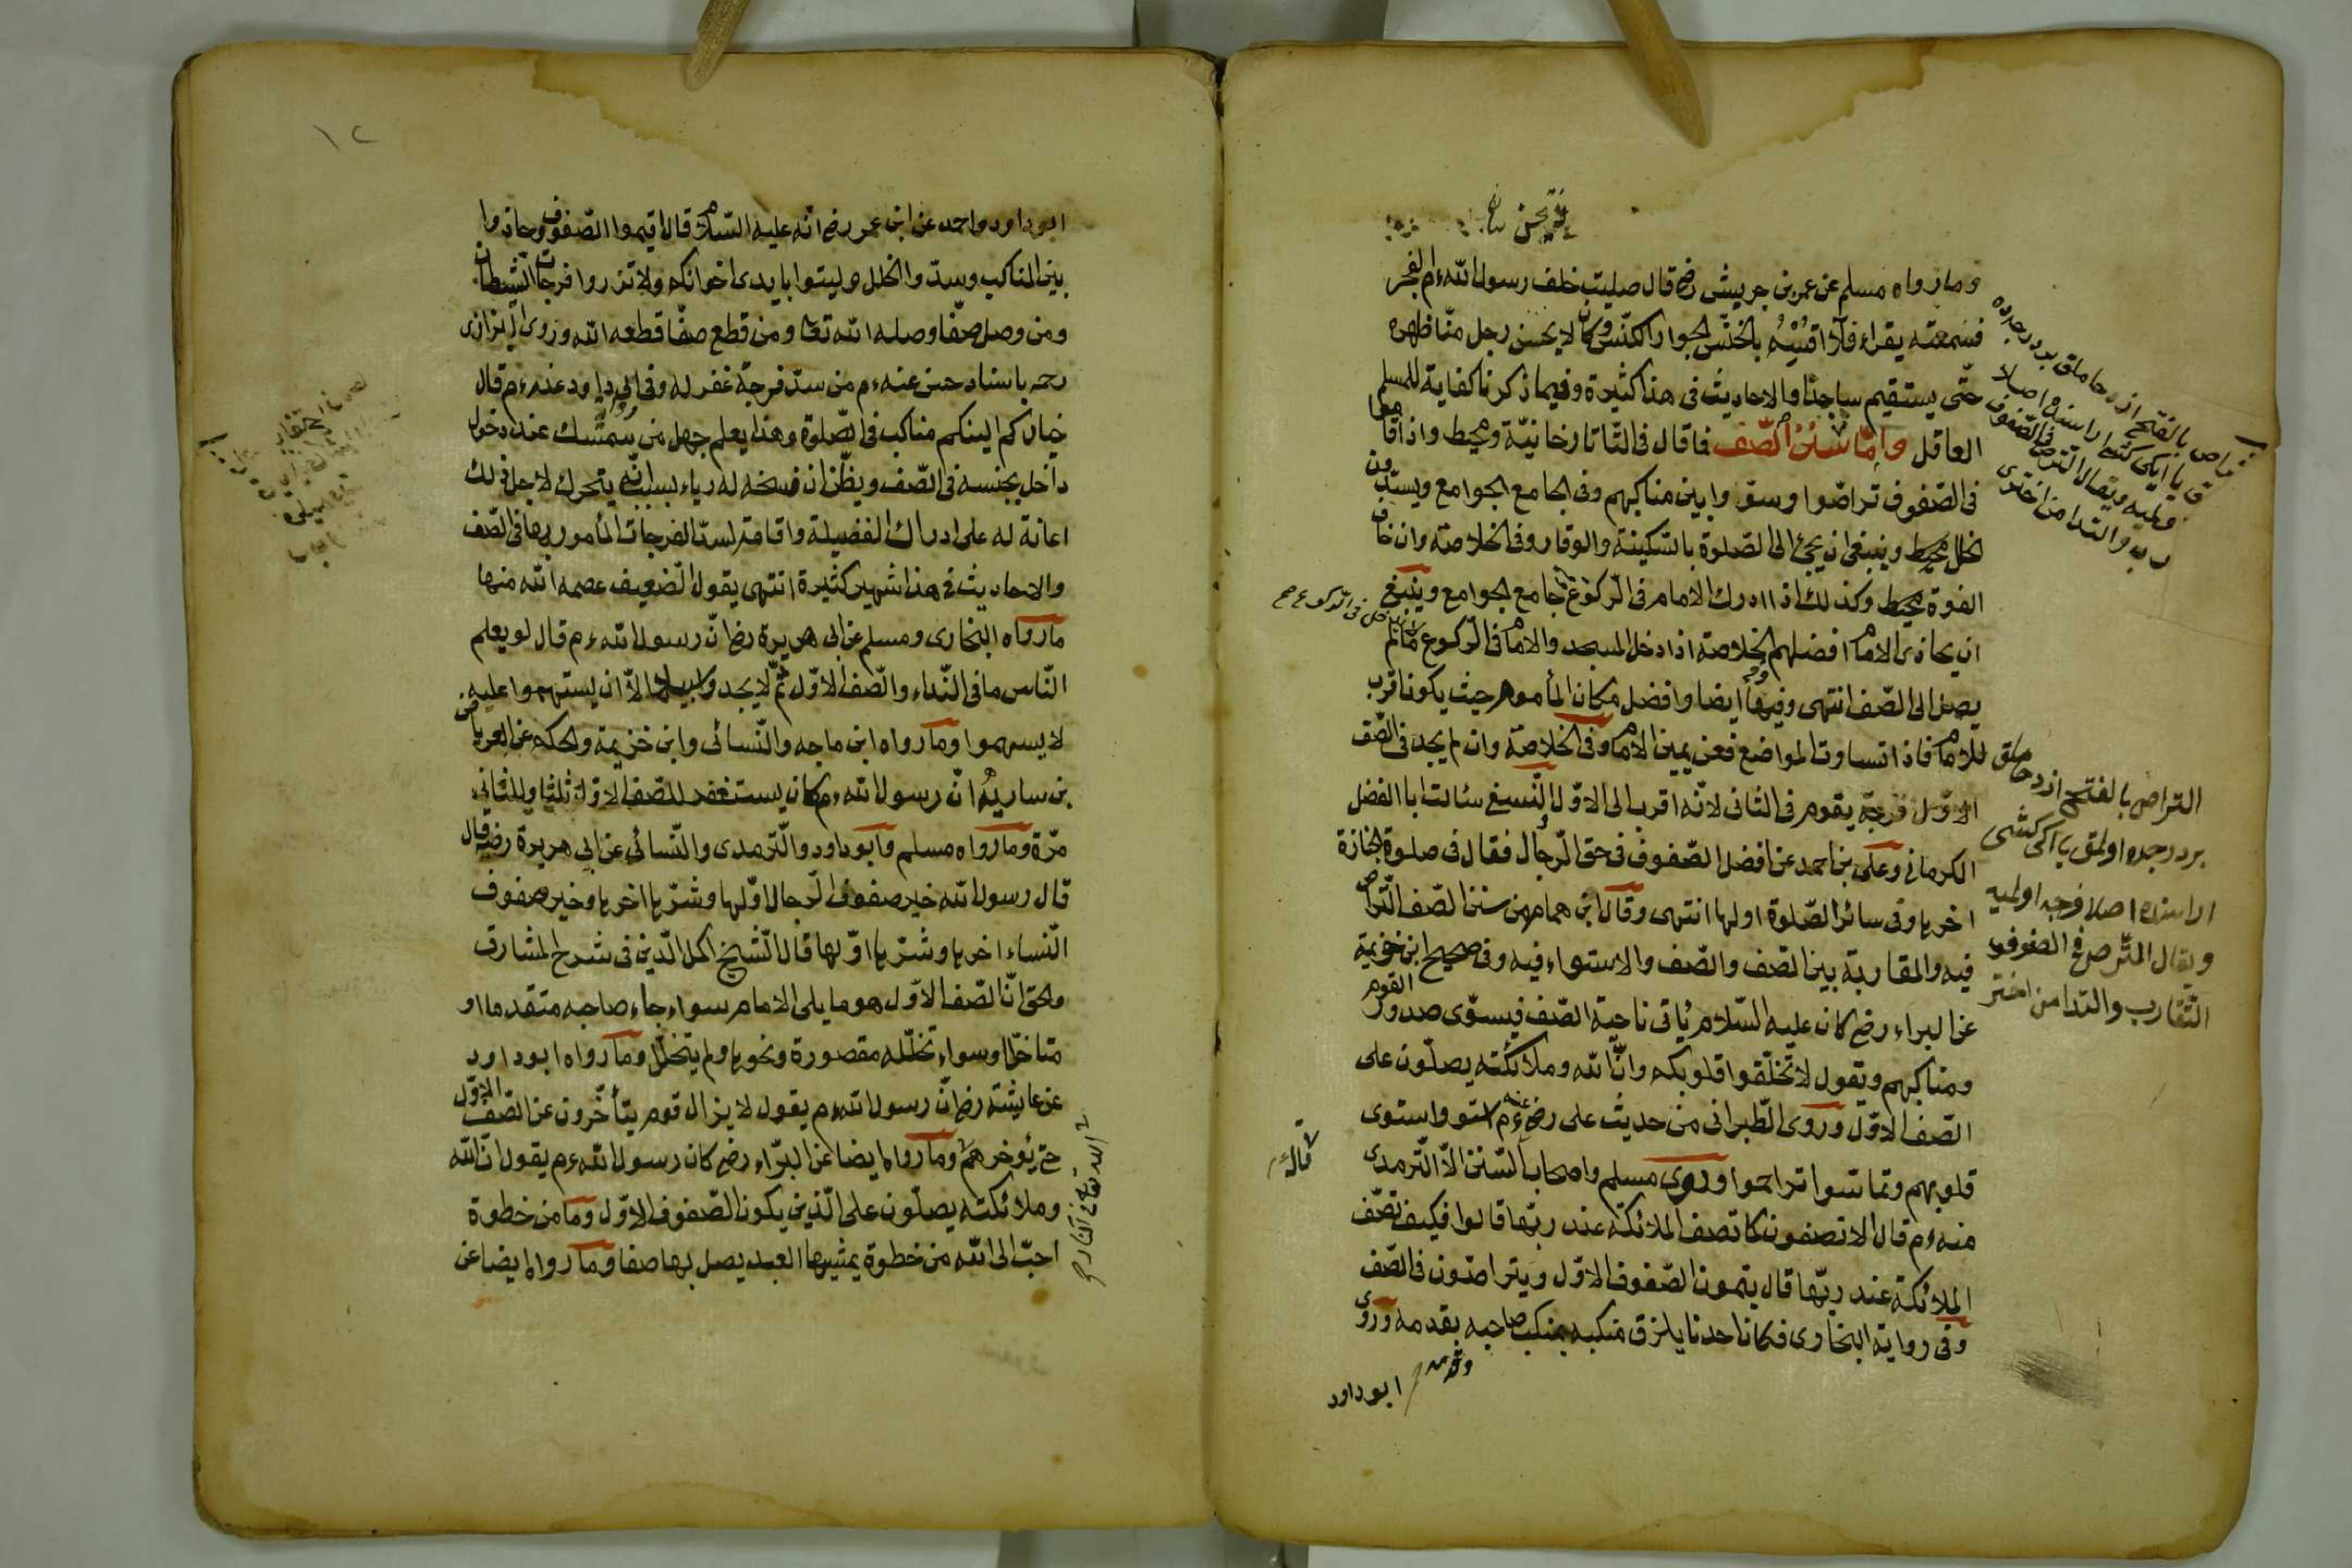 وما رواه مسلم عن عمر بن جريش رضه قال صليت خلف رسول الله ءم الفجر
فسمعته يقراء فلا اقسم بالخنس الجوار الكنس وكان لا يحسن رجل منا ظهره
حتى يستقيم ساجدا والاحاديث فى هذا كثيرة وفيما ذكرنا كفاية للمسلم
العاقل واما سنن الصف فما قال فى التاتارخانية ومحيط واذا قاموا
فى الصفوف تراصوا وسووا بين مناكبهم وفى الجامع الجوامع ويسدون
الخلل محيط وينبغى ان يجئ الى الصلوة بالسكينة والوقار وفى الخلاصة وان خاف
الفوة محيط وكذلك اذا ادرك الامام فى الركوع جامع الجوامع وينبغى
ان يحاذى الامام افضلهم الخلاصة اذا دخل المسجد والامام فى الركوع مالم
يصل الى الصف انتهى وفيها ايضا وافضل مكان المأموم حيث يكون اقرب
للامام فاذا تساوت المواضع فعن يمين الامام وفى الخلاصة وان لم يجد فى الصف
الاول فرجة يقوم فى الثانى لانه اقرب الى الاول النسيغ سئالت ابا الفضل
الكرمانى وعلى بن احمد عن افضل الصفوف فى حق الرجال فقال فى صلوة الجنازة
اخرها وفى سائر الصلوة اولها انتهى وقال ابن همام من سنن الصف التراص
فيه والمقاربة بين الصف والصف والاستواء فيه وفى صحيح ابن خزيمة
عن البراء رضه كان عليه السلام ياتى ناحية الصف فيسوى صدور القوم
ومناكبهم ويقول لا تختلفوا قلوبكم وان الله وملائكته يصلون على
الصف الاول وروى الطبرانى من حديث على رضه عنه ءم استووا ستوى
قلوبهم وتماسوا تراحموا وروى مسلم واصحاب السنن الا الترمدى
منه ءم قال الا تصفون كما تصف الملائكة عند ربها قالوا فكيف تصف
الملائكة عند ربها قال يتمون الصفوف الاول ويتراصون فى الصف
وفى رواية البخارى فكان احدنا يلزق منكبه بمنكب صاحبه بقدمه وروى
ابو داود
التراص بالفتح
ويقال التراص فى الصفوف
التقارب والتدا من اختر
١٢
ابو داود واحمد عن ابن عمر رضه انه عليه السلام قال اقيموا الصفوف وحاذوا
بين المناكب وسدوا الخلل وليتوا بايدى اخوانكم ولا تذروا فرجات الشيطان
ومن وصل صفا وصله الله تعا ومن قطع صفا قطعه الله وروى البزازى
رحمه باسناد حسن عنه ءم من سد فرجة غفر له وفى ابى داود عنه ءم قال
خياركم الينكم مناكب فى الصلوة وهذا يعلم جهل من يستمسك عند دخول
داخل بجنبه فى الصف ويظن ان فسخه له رياء بسبب انه يتحرك لاجله ذلك
اعانة له على ادراك الفضيلة واقامة لسد الفرجات المأمور بها فى الصف
والاحاديث فى هذا شهير كثيرة انتهى يقول الضعيف عصمه الله منها
ما رواه البخارى ومسلم عن ابى هريرة رضه ان رسول الله ءم قال لو يعلم
الناس ما فى النداء والصف الاول ثم لا يجدوا سبيلا الا ان يستهموا عليه
لا يسهموا وما رواه ابن ماجه والنسائى وابن خزيمة والحكم عن العرباض
بن سارية ان رسول الله ءم كان يستغفر للصف الاول ثلثا وللثانى
مرة وما رواه مسلم وابو داود والترمدى والنسائى عن ابى هريرة رضه قال
قال رسول الله خير صفوف الرجال اولها وشرها اخرها وخير صفوف
النساء اخرها وشرها اولها قال الشيخ اكمل الدين فى شرح المشارق
والحق ان الصف الاول هو ما يلى الامام سواء جاء صاحبه متقدما او
متاخرا وسواء تخلله مقصورة ونحوها ولم يتخلل وما رواه ابو داود
عن عايشة رضه ان رسول الله ءم يقول لا يزال قوم يتأخرون عن الصف الاول
حتى يؤخرهم وما رواه ايضا عن البراء رضه كان رسول الله ءم يقول ان الله
وملائكته يصلون على الذين يكون الصفوف الاول وما من خطوة
احب الى الله من خطوة يمشيها العبد يصل بها صفا وما رواه ايضا عن
الله تعا فى النار